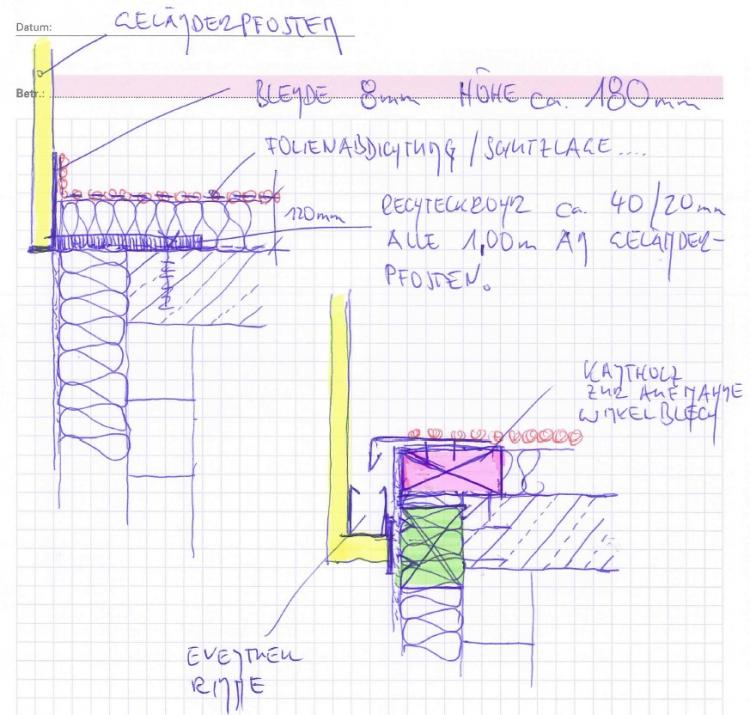 Datum:
GELÄNDERPFOSTEN
Betr.:
BLENDE 8mm HÖHE ca. 180mm
FOLIENABDICHTUNG / SCHUTZLAGE....
120mm
RECHTECKROHR ca. 40/20mm
ALLE 1,00m AN GELÄNDER-
PFOSTEN.
KANTHOLZ
ZUR AUFNAHME
WINKELBLECH
EVENTUELL
RINNE